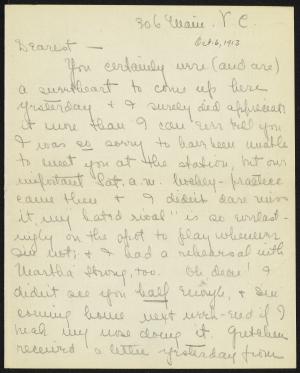 306 Main. V. C.
Oct. 6, 1913
Dearest —
You certainly were (and are)
a sweetheart to come up here
yesterday & I surely did appreciate
it more than I can ever tell you.
I was so sorry to have been unable
to meet you at the station, but our
important Sat. a.m. hockey-practice
came then & I didn't dare miss
it, my hated rival is so everlast-
ingly on the spot to play whenever
I'm not; & I had a rehearsal with
Martha Strong, too. Oh dear! I
didn't see you half enough, & I'm
coming home next week-end if I
break my nose doing it. Gretchen
received a letter yesterday from